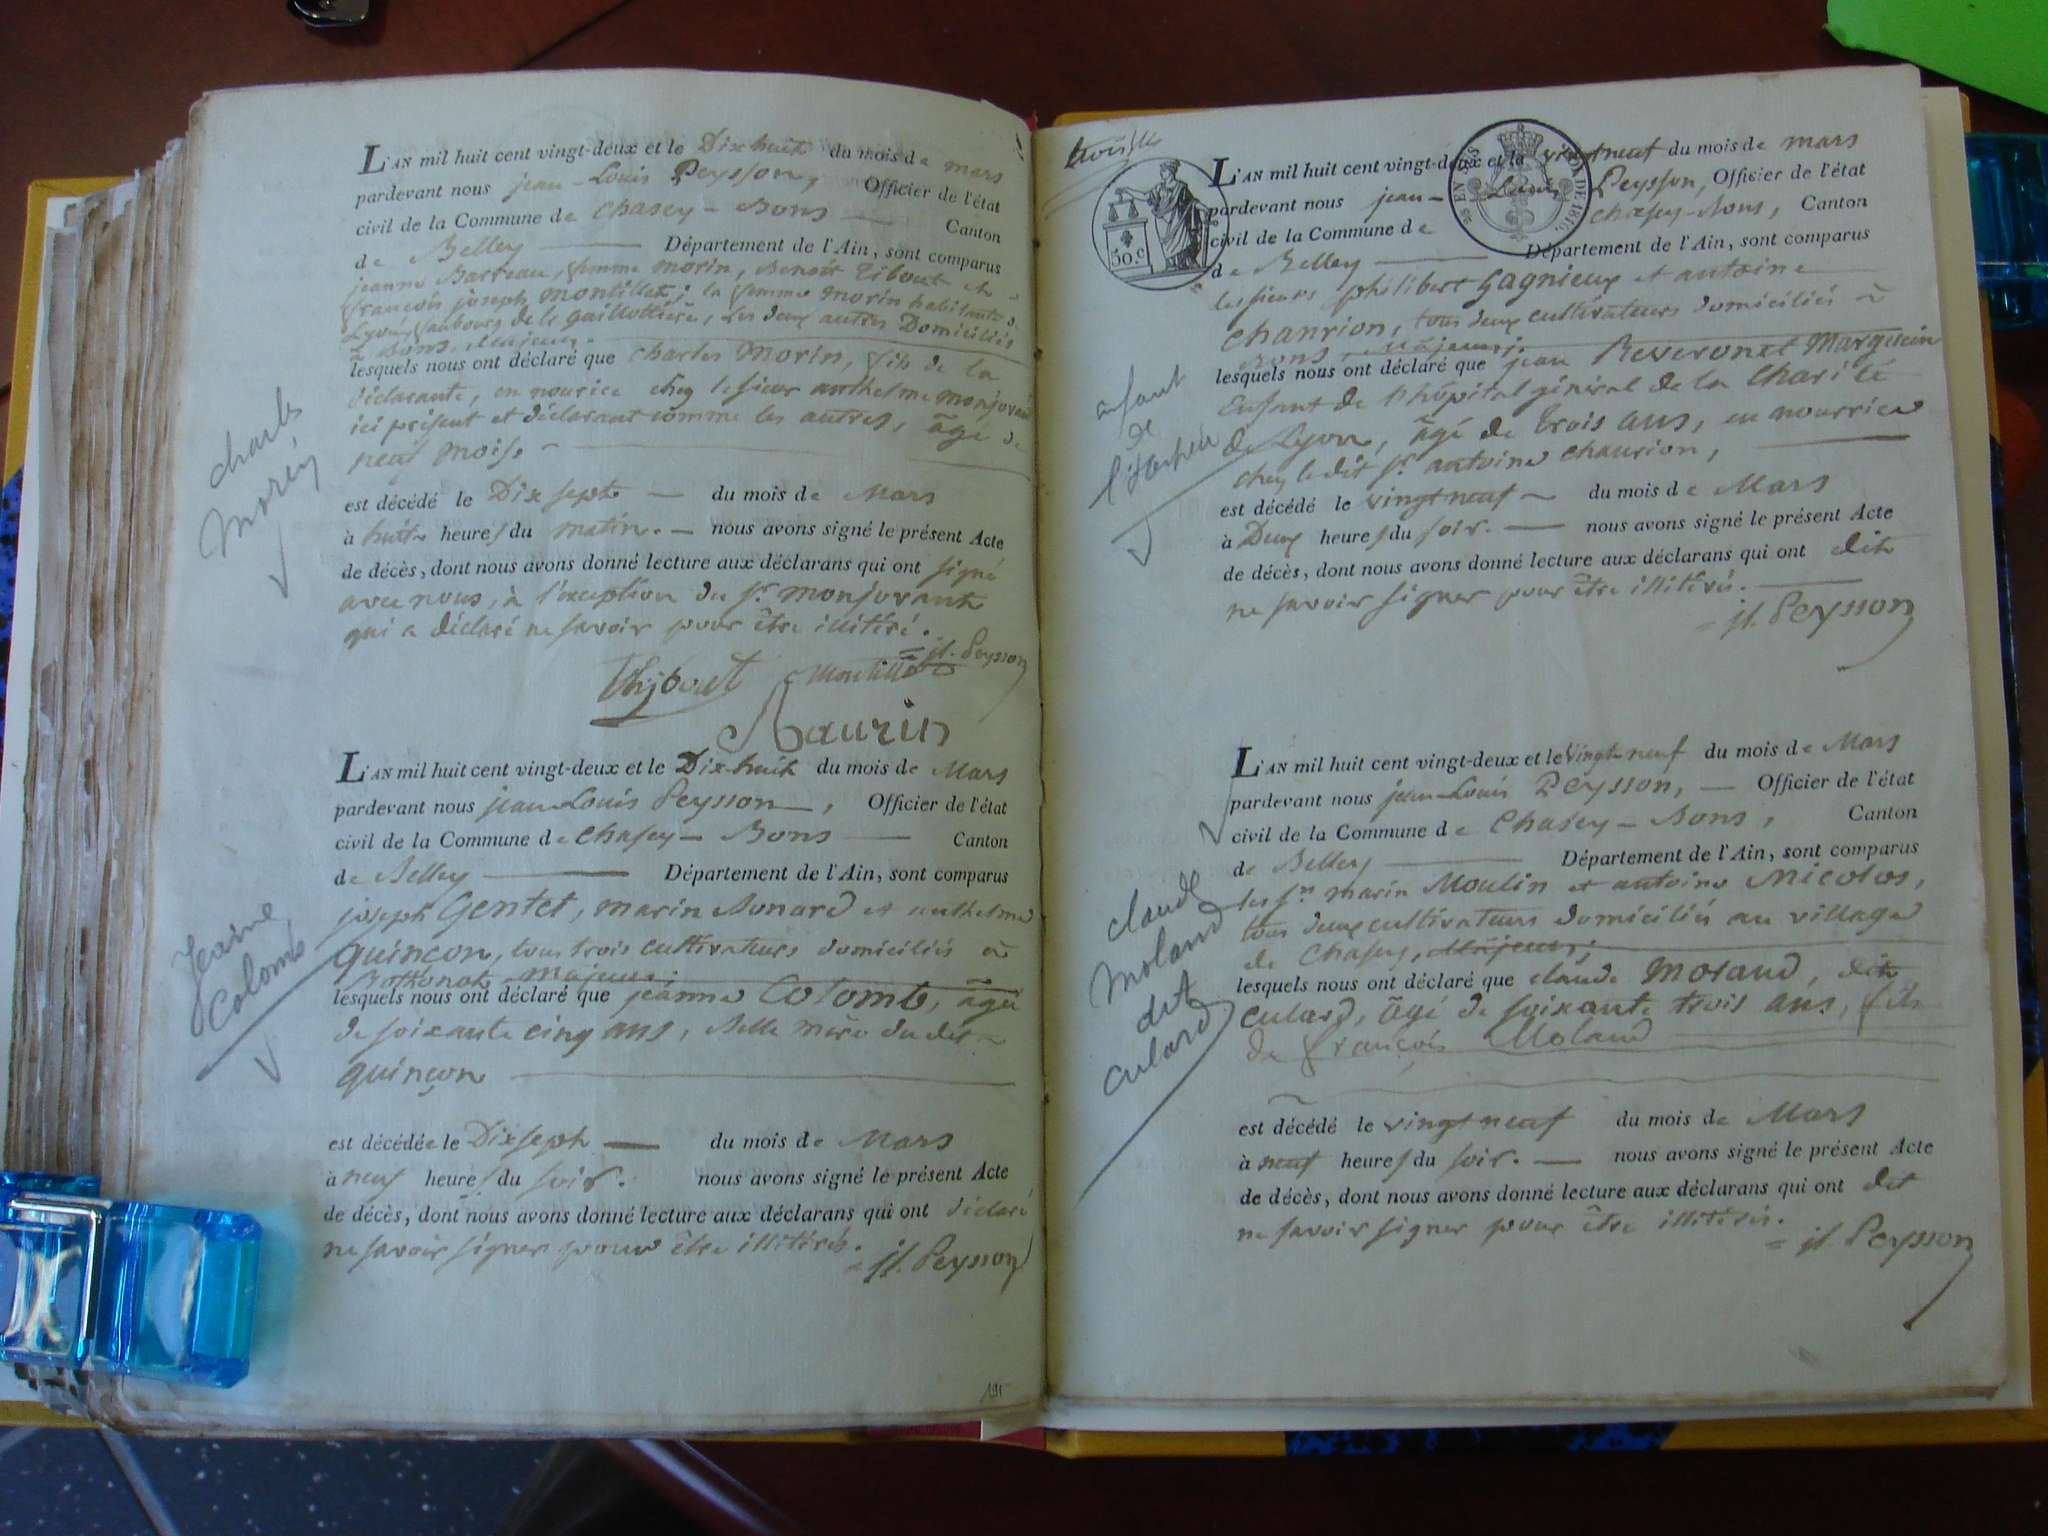 L'AN mil huit cent vingt-deux et le Dix huit du mois de mars
pardevant nous jean-Louis Peysson, Officier de l'état
civil de la Commune de Chasey-Bons Canton
de Belley Département de l'Ain, sont comparus
jeanne Barreau, femme morin, Benoit Tibout et
françois joseph montillet; la femme morin habitante à
Lyon, faubourg de la guillottiere, Les deux autres Domiciliés
à Bons, Majeurs.
lesquels nous ont déclaré que Charles morin, fils de la
déclarante, en nourice chez le sieur anthelme monjovant
ici présent et déclarant comme les autres, âgé de
neuf mois.
est décédé le Dix sept du mois de Mars
à huit heures du matin. nous avons signé le présent Acte
de décès, dont nous avons donné lecture aux déclarans qui ont signé
avec nous, à l'exception du Sr. monjovant
qui a déclaré ne savoir pour être illitéré.
jl. Peysson
Thibout Montillet
Maurin
charles
morin
L'AN mil huit cent vingt-deux et le Dix huit du mois de Mars
pardevant nous jean-Louis Peysson, Officier de l'état
civil de la Commune de Chasey-Bons Canton
de Belley Département de l'Ain, sont comparus
joseph Gentet, marin Bonard et anthelme
quinçon, tous trois cultivateurs domiciliés à
Rothonot, majeurs.
lesquels nous ont déclaré que jeanne Colomb, âgé
de soixante cinq ans, Belle mère du dit
quinçon
est décédée le Dix sept du mois de Mars
à neuf heures du soir. nous avons signé le présent Acte
de décès, dont nous avons donné lecture aux déclarans qui ont déclaré
ne savoir signer pour être illitérés.
jl. Peysson
Jeanne
Colomb
195
30.c
L'AN mil huit cent vingt-deux et le vingt neuf du mois de mars
pardevant nous jean-Louis Peysson, Officier de l'état
civil de la Commune de Chasey-Bons, Canton
de Belley Département de l'Ain, sont comparus
les sieurs philibert Gagnieux et antoine
Chanrion, tous deux cultivateurs domiciliés à
Bons Majeurs.
lesquels nous ont déclaré que jean Reveronet Marguein
Enfant de l'hôpital général de la Charité
de Lyon, âgé de trois ans, en nourrice
chez le dit Sr. antoine chanrion,
est décédé le vingt neuf du mois de Mars
à Deux heures du soir. nous avons signé le présent Acte
de décès, dont nous avons donné lecture aux déclarans qui ont dit
ne savoir signer pour être illitérés.
jl. Peysson
enfant
de
L'AN mil huit cent vingt-deux et le vingt neuf du mois de Mars
pardevant nous jean-Louis Peysson, Officier de l'état
civil de la Commune de Chasey-Bons, Canton
de Belley Département de l'Ain, sont comparus
les Srs marin Moulin et antoine Nicolos,
tous deux cultivateurs domiciliés au village
de Chasey, Majeurs;
lesquels nous ont déclaré que claude Moland, dit
culard, âgé de soixante trois ans, fils
de françois Moland
est décédé le vingt neuf du mois de Mars
à neuf heures du soir. nous avons signé le présent Acte
de décès, dont nous avons donné lecture aux déclarans qui ont dit
ne savoir signer pour être illitérés.
jl. Peysson
claude
moland
dit
culard